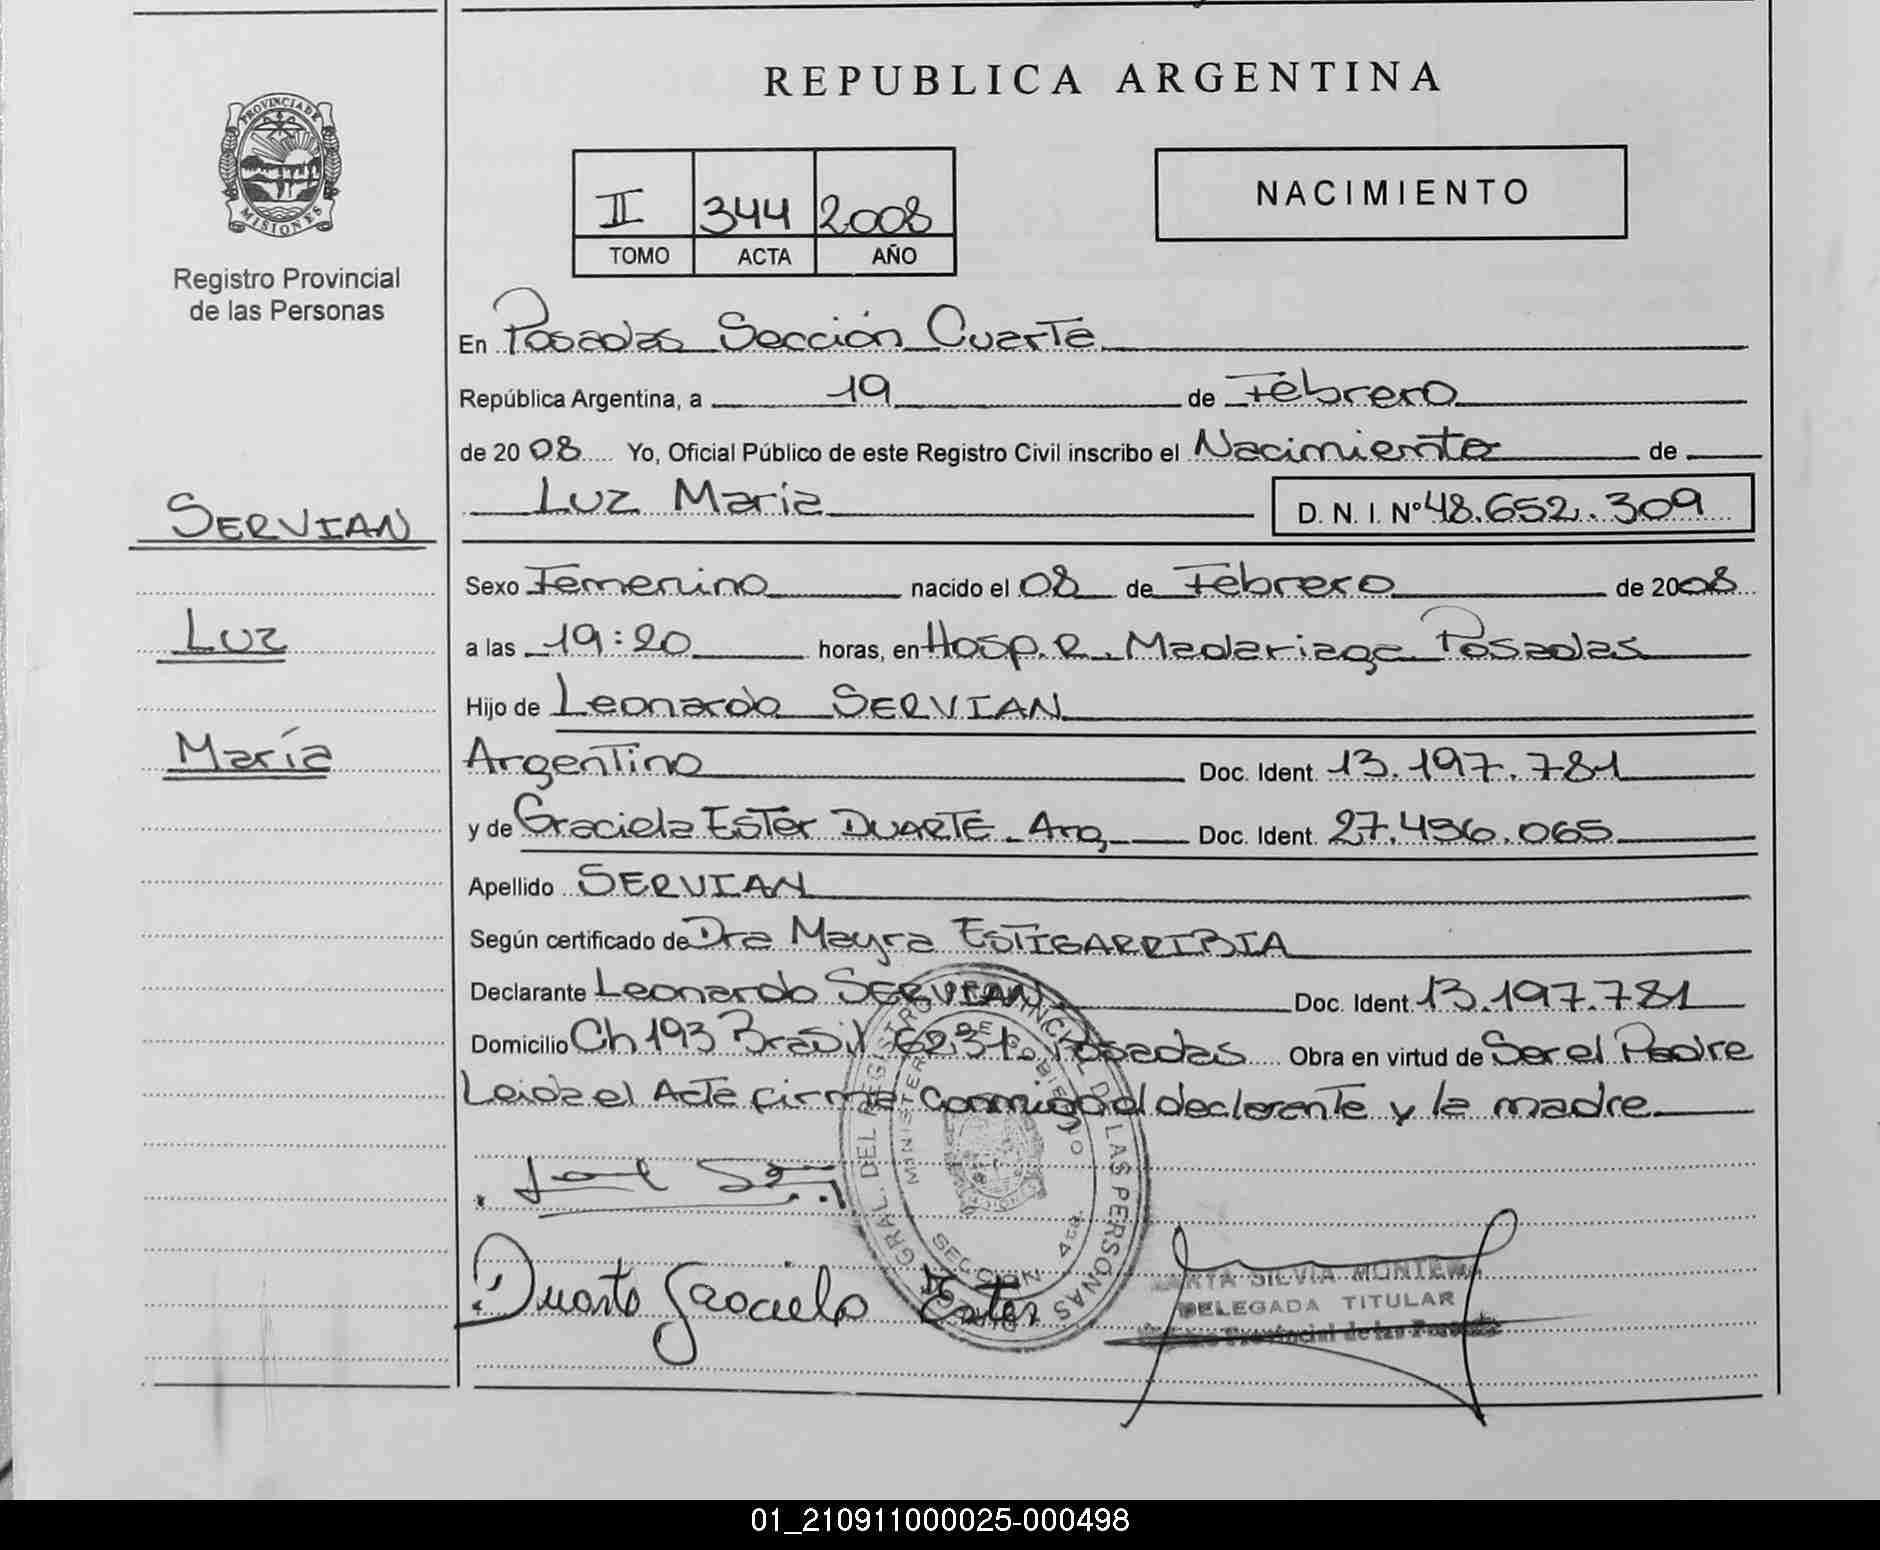 REPUBLICA ARGENTINA
PROVINCIA DE
MISIONES
Registro Provincial
de las Personas
II 344 2008
TOMO ACTA AÑO
NACIMIENTO
SERVIAN
Luz
María
En Posadas Sección Cuarta
República Argentina, a 19 de Febrero
de 2008 Yo, Oficial Público de este Registro Civil inscribo el Nacimiento de
Luz Maria D. N. I. Nº 48.652.309
Sexo Femenino nacido el 08 de Febrero de 2008
a las 19:20 horas, en Hosp. R. Madariaga Posadas
Hijo de Leonardo SERVIAN
Argentino Doc. Ident. 13.197.781
y de Graciela Ester DUARTE Arg. Doc. Ident. 27.496.065
Apellido SERVIAN
Según certificado de Dra Mayra ESTIGARRIBIA
Declarante Leonardo SERVIAN Doc. Ident. 13.197.781
Domicilio Ch 193 Brasil 6231. Posadas Obra en virtud de Ser el Padre
Leida el Acta firma conmigo el declarante y la madre
GRAL. DEL REGISTRO PROVINCIAL DE LAS PERSONAS
MINISTERIO DE GOBIERNO
SECCION 4ta.
Duarte Graciela Ester
SILVIA
DELEGADA TITULAR
Provincial de las Personas
01_210911000025-000498